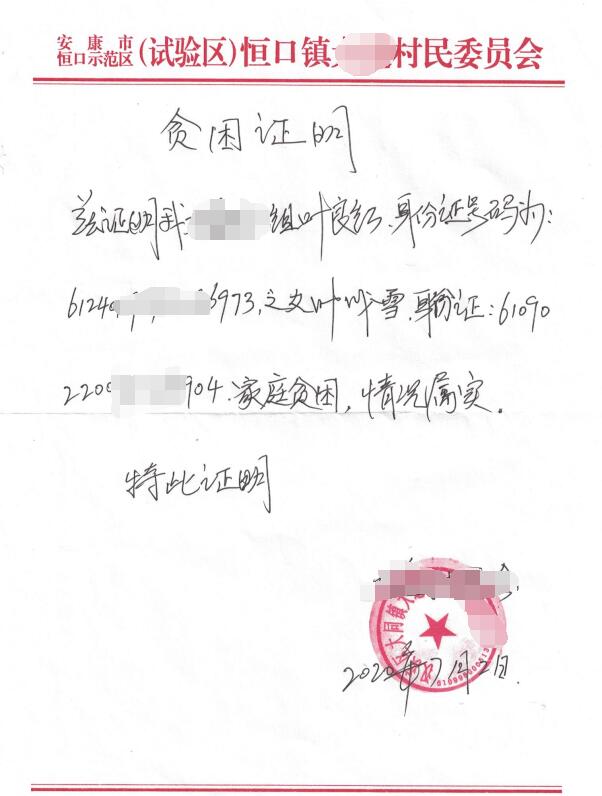 安康市
恒口示范区(试验区)恒口镇 村民委员会
贫困证明
兹证明我 组叶良红,身份证号码为:
6124 3973,之女叶 雪,身份证:61090
2200 904.家庭贫困,情况属实。
特此证明
大同镇
2020年7月2日.